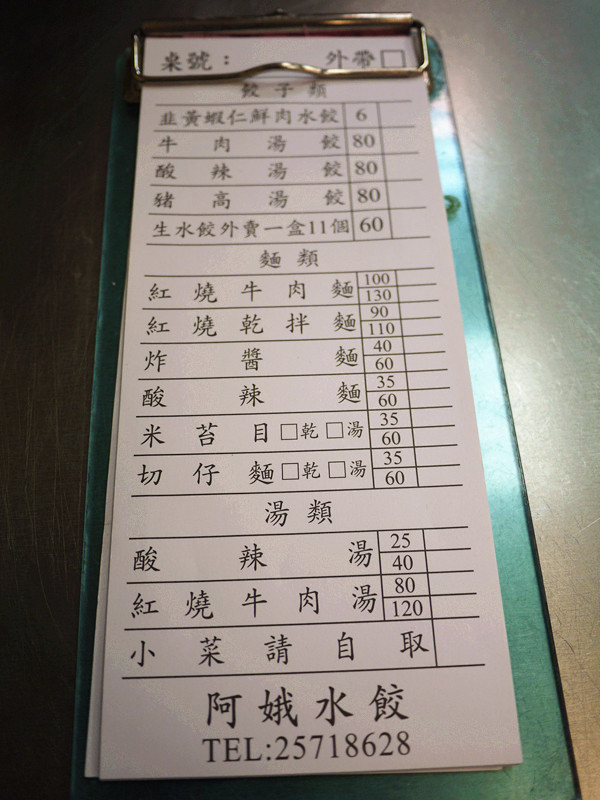 桌號： 外帶□
餃子類
韭黃蝦仁鮮肉水餃 6
牛肉湯餃 80
酸辣湯餃 80
豬高湯餃 80
生水餃外賣一盒11個 60
麵類
紅燒牛肉麵 100 130
紅燒乾拌麵 90 110
炸醬麵 40 60
酸辣麵 35 60
米苔目□乾□湯 35 60
切仔麵□乾□湯 35 60
湯類
酸辣湯 25 40
紅燒牛肉湯 80 120
小菜請自取
阿娥水餃
TEL:25718628